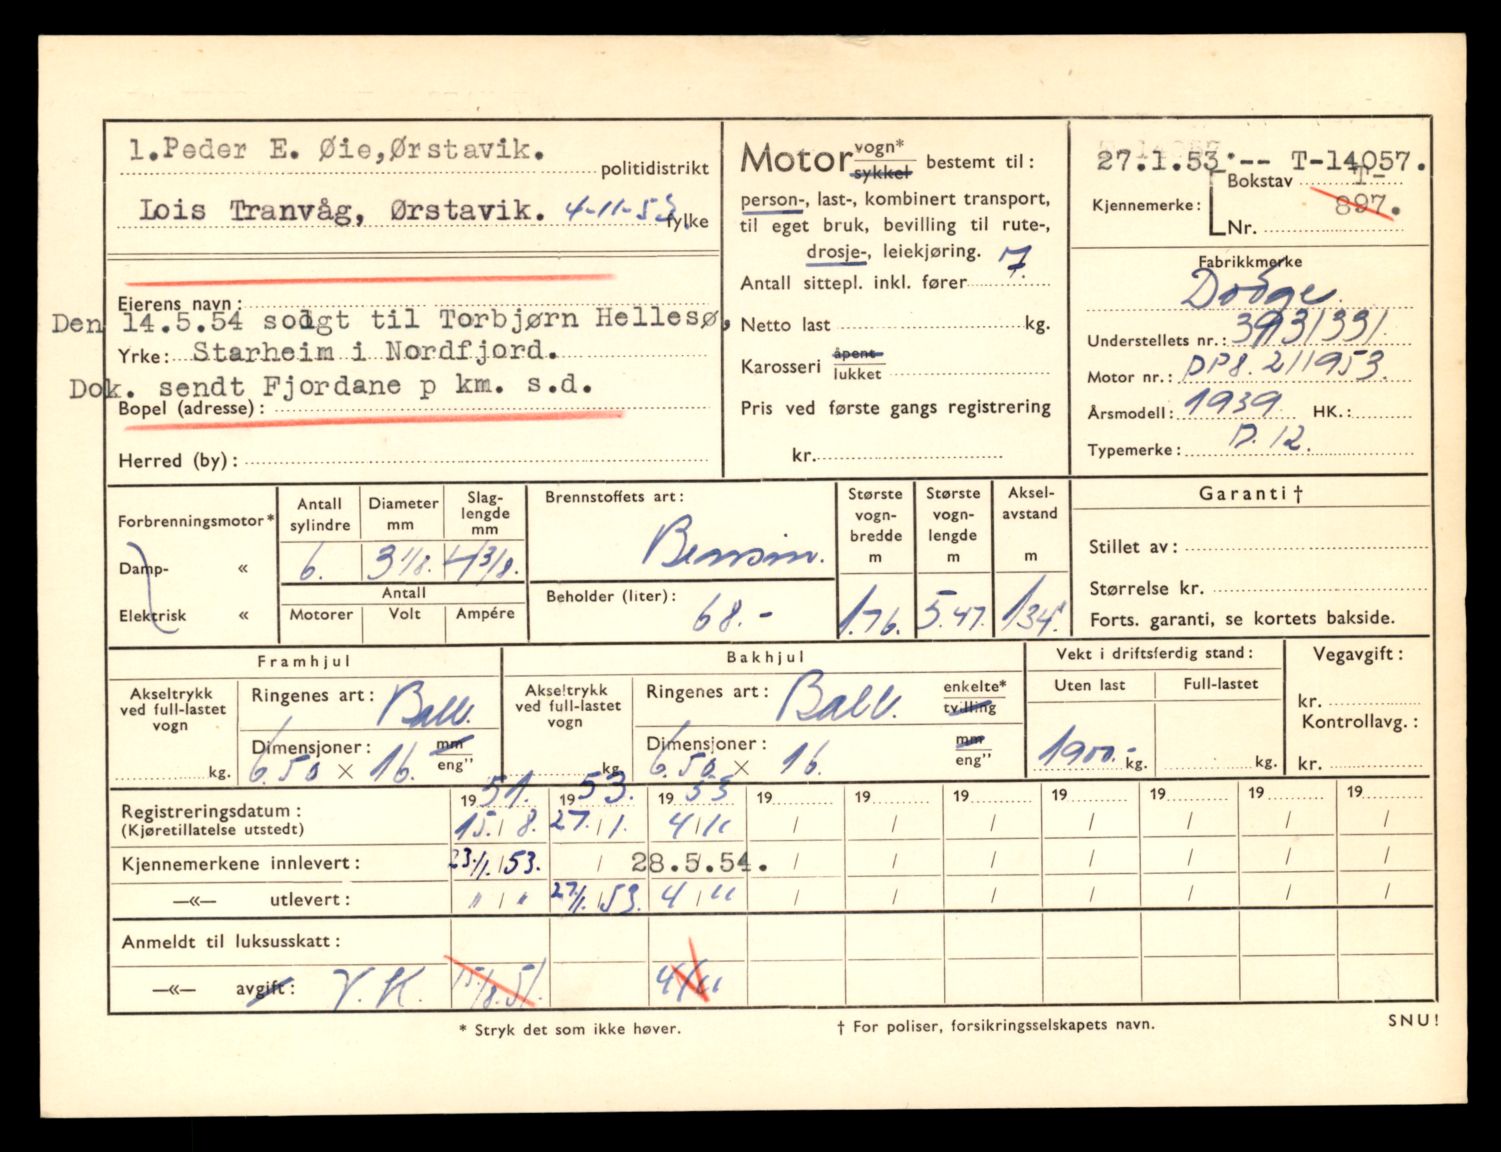 1.Peder E. Øie,Ørstavik.
politidistrikt
Lois Tranvåg, Ørstavik. 4-11-53
fylke
Eierens navn:
Den 14.5.54 solgt til Torbjørn Hellesø,
Yrke: Starheim i Nordfjord.
Dok. sendt Fjordane p km. s.d.
Bopel (adresse):
Herred (by):
Motor vogn* sykkel bestemt til:
person-, last-, kombinert transport,
til eget bruk, bevilling til rute-,
drosje-, leiekjøring.
Antall sittepl. inkl. fører 7
Netto last kg.
Karosseri åpent lukket
Pris ved første gangs registrering
kr.
27.1.53.-- T-14057.
Kjennemerke: Bokstav T-
Nr. 897.
Fabrikkmerke
Dodge
Understellets nr.: 3931331
Motor nr.: DP8. 211953.
Årsmodell: 1939 HK.:
Typemerke: D. 12.
Forbrenningsmotor*
Damp- «
Elektrisk «
Antall sylindre Diameter mm Slag-lengde mm
6. 3 1/8. 4 3/8.
Antall
Motorer Volt Ampére
Brennstoffets art:
Bensin.
Beholder (liter): 68.-
Største vogn-bredde m
1.76.
Største vogn-lengde m
5.47.
Aksel-avstand m
134"
Garanti †
Stillet av:
Størrelse kr.
Forts. garanti, se kortets bakside.
Framhjul
Akseltrykk ved full-lastet vogn
kg.
Ringenes art: Ball.
Dimensjoner: mm eng"
6.50 × 16.
Bakhjul
Akseltrykk ved full-lastet vogn
kg.
Ringenes art: Ball. enkelte* tvilling
Dimensjoner: mm eng"
6.50 × 16.
Vekt i driftsferdig stand:
Uten last Full-lastet
1900.- kg. kg.
Vegavgift:
kr.
Kontrollavg.:
kr.
Registreringsdatum: 1951. 1953. 1953 19 19 19 19 19 19 19
(Kjøretillatelse utstedt) 15./8. 27./1. 4/11 / / / / / / /
Kjennemerkene innlevert: 23./1./53. / 28.5.54. / / / / / / /
—«— utlevert: " / " 27/1./53. 4/11 / / / / / / /
Anmeldt til luksusskatt:
—«— avgift: V.K. 15./8.51. 4/11
* Stryk det som ikke høver.
† For poliser, forsikringsselskapets navn.
SNU!